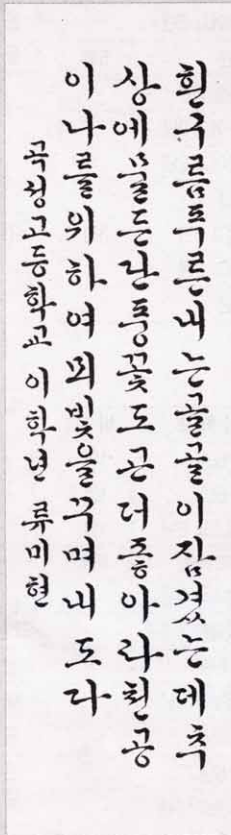 흰구름푸른내는골골이잠겼는데추
상에물든단풍꽃도곤더좋아라천공
이나를위하여뫼빛을꾸며내도다
곡성고등학교 이학년 류미현